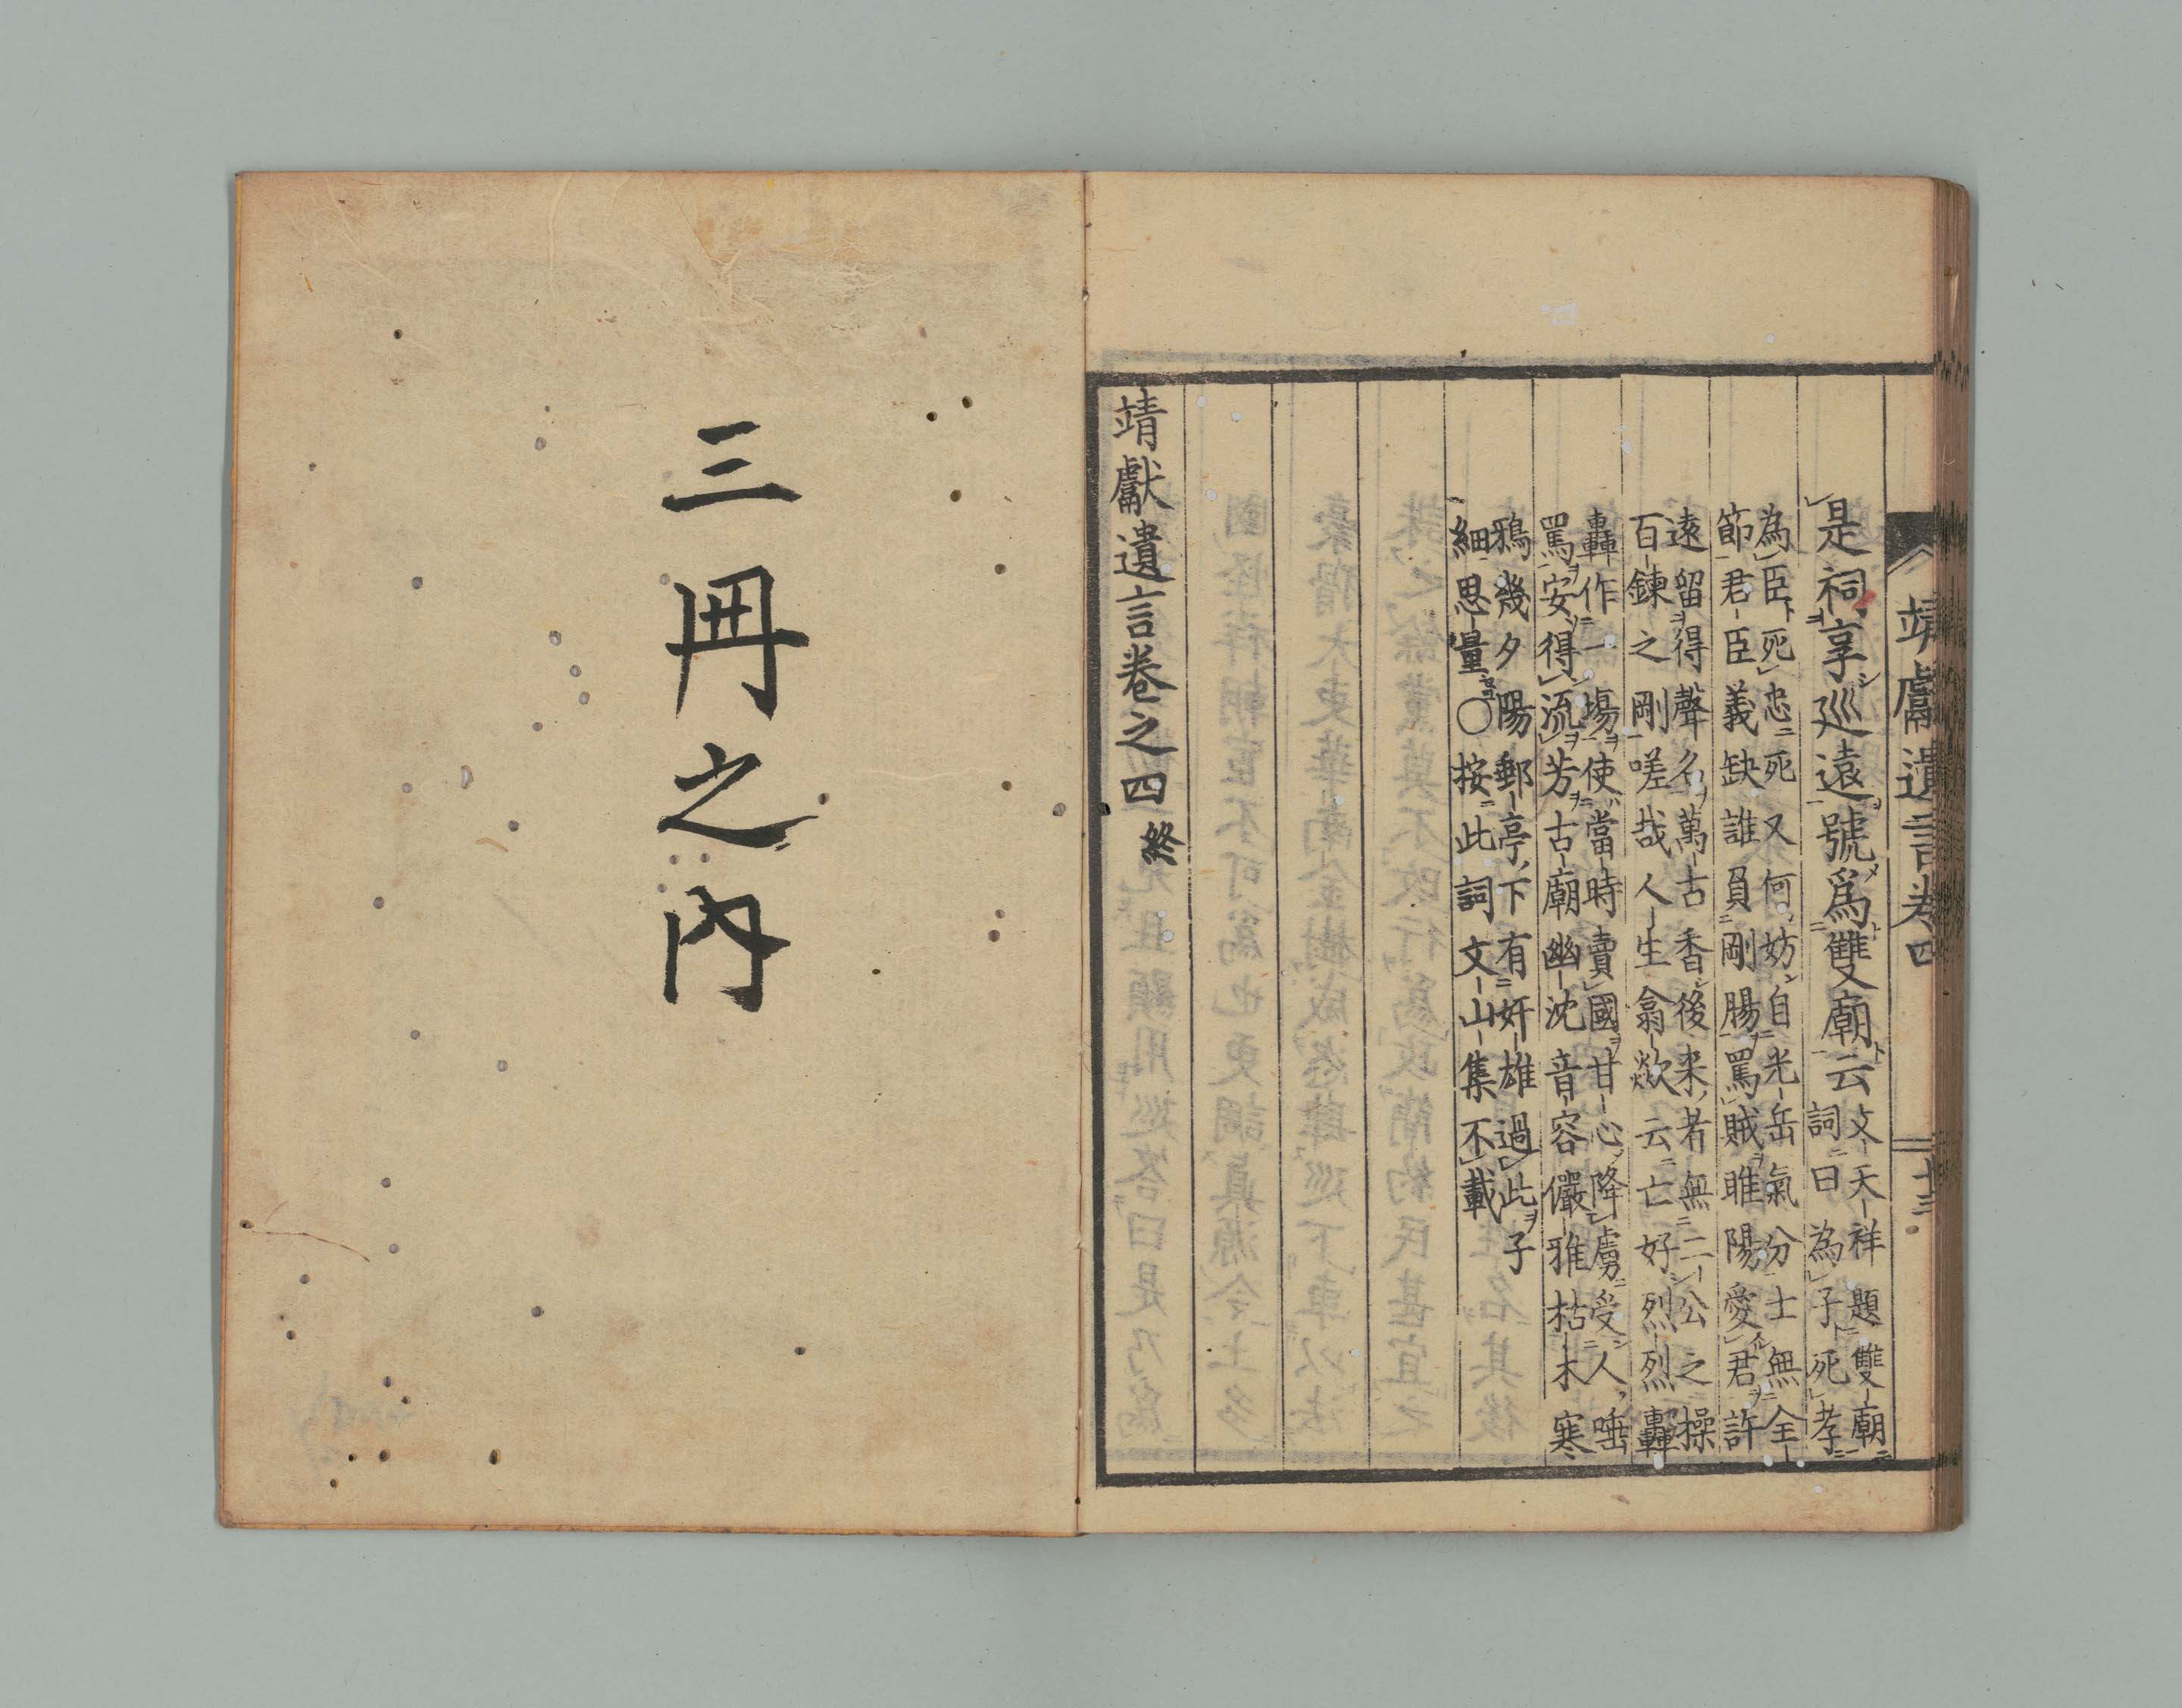 靖獻遺言卷四
十三
是祠享巡遠號爲雙廟云
文天祥題雙廟
詞曰為子死孝
為臣死忠死又何妨自光岳氣分士無全
節君臣義缺誰員剛腸罵賊睢陽愛君許
遠留得聲名萬古香後来者無二公之操
百鍊之剛嗟哉人生翕歘云亡好烈烈轟
轟作一場使當時賣國甘心降虜受人唾
罵安得流芳古廟幽沈音容儼雅枯木寒
鴉幾夕陽郵亭下有奸雄過此子
細思量〇按此詞文山集不載
靖獻遺言卷之四 終
三冊之内